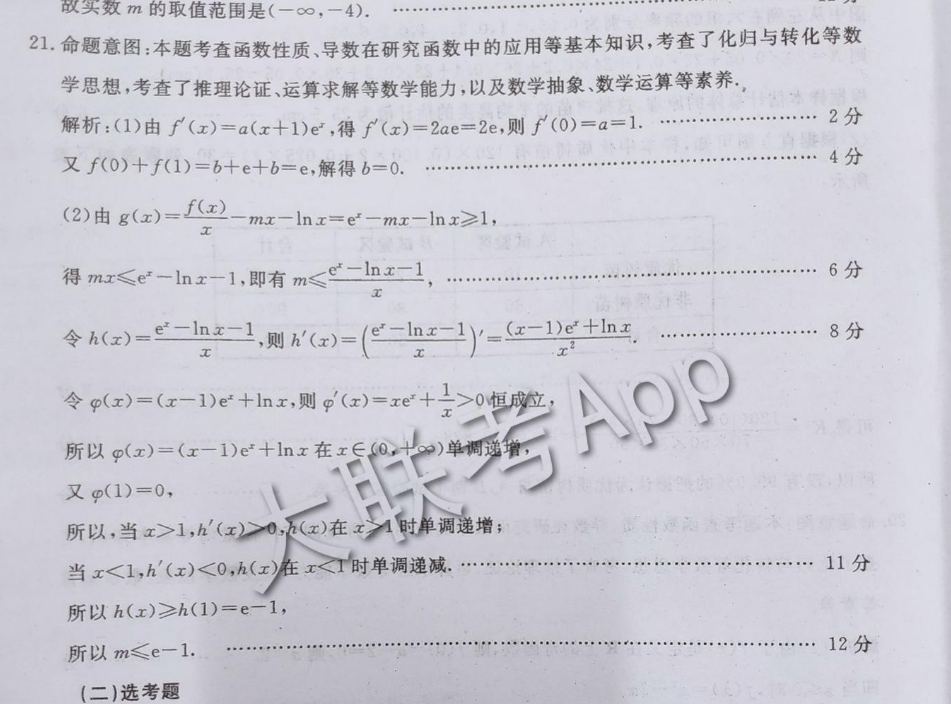 故实数 m 的取值范围是(-∞,-4).
21. 命题意图:本题考查函数性质、导数在研究函数中的应用等基本知识,考查了化归与转化等数
学思想,考查了推理论证、运算求解等数学能力,以及数学抽象、数学运算等素养.
解析:(1)由 f′(x)=a(x+1)eˣ,得 f′(x)=2ae=2e,则 f′(0)=a=1. ………… 2 分
又 f(0)+f(1)=b+e+b=e,解得 b=0. ………… 4 分
(2)由 g(x)=f(x)/x-mx-ln x=eˣ-mx-ln x⩾1,
得 mx⩽eˣ-ln x-1,即有 m⩽(eˣ-ln x-1)/x, ………… 6 分
令 h(x)=(eˣ-ln x-1)/x,则 h′(x)=((eˣ-ln x-1)/x)′=((x-1)eˣ+ln x)/x². ………… 8 分
令 φ(x)=(x-1)eˣ+ln x,则 φ′(x)=xeˣ+1/x>0 恒成立,
所以 φ(x)=(x-1)eˣ+ln x 在 x∈(0,+∞)单调递增,
又 φ(1)=0,
所以,当 x>1,h′(x)>0,h(x)在 x>1 时单调递增;
当 x<1,h′(x)<0,h(x)在 x<1 时单调递减. ………… 11 分
所以 h(x)⩾h(1)=e-1,
所以 m⩽e-1. ………… 12 分
(二)选考题
大联考App